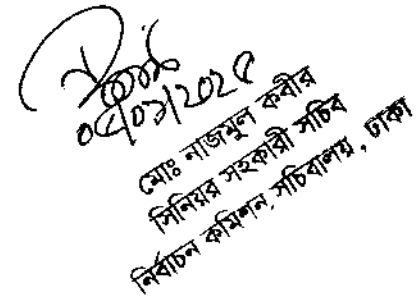 মোঃ নাজমুল কবীর
সিনিয়র সহকারী সচিব
নির্বাচন কমিশন, সচিবালয়, ঢাকা